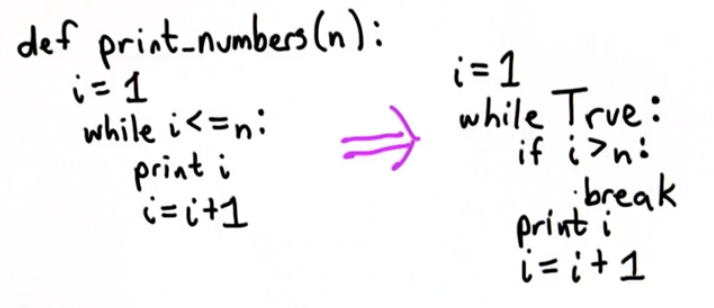 def print_numbers(n):
i = 1
while i<=n:
print i
i=i+1
i=1
while True:
if i>n:
break
print i
i=i+1